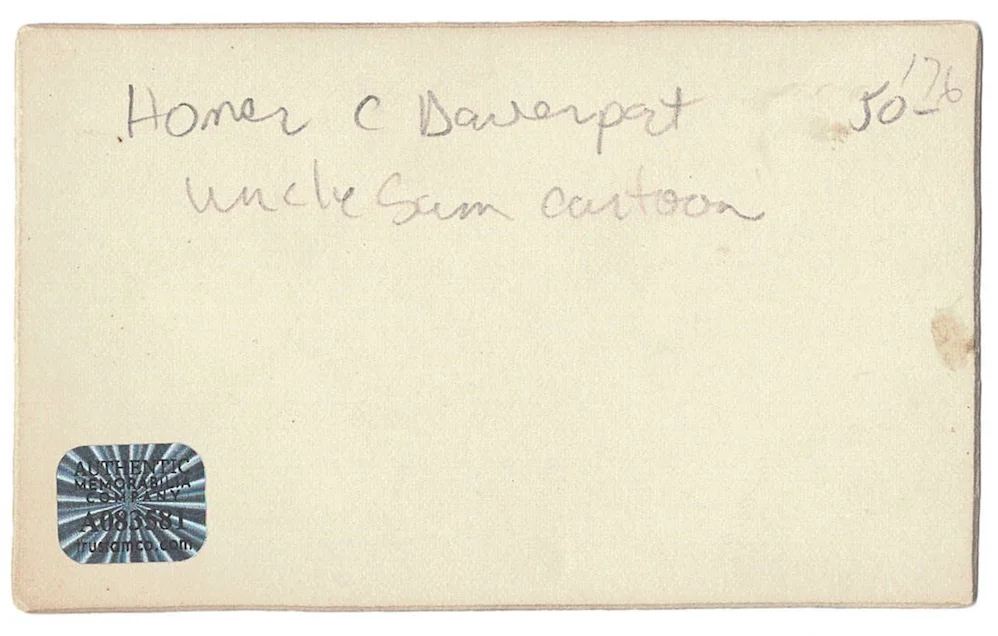 Homer C Davenport
50
176
Uncle Sam cartoon
AUTHENTIC
MEMORABILIA
COMPANY
A083581
trustamco.com